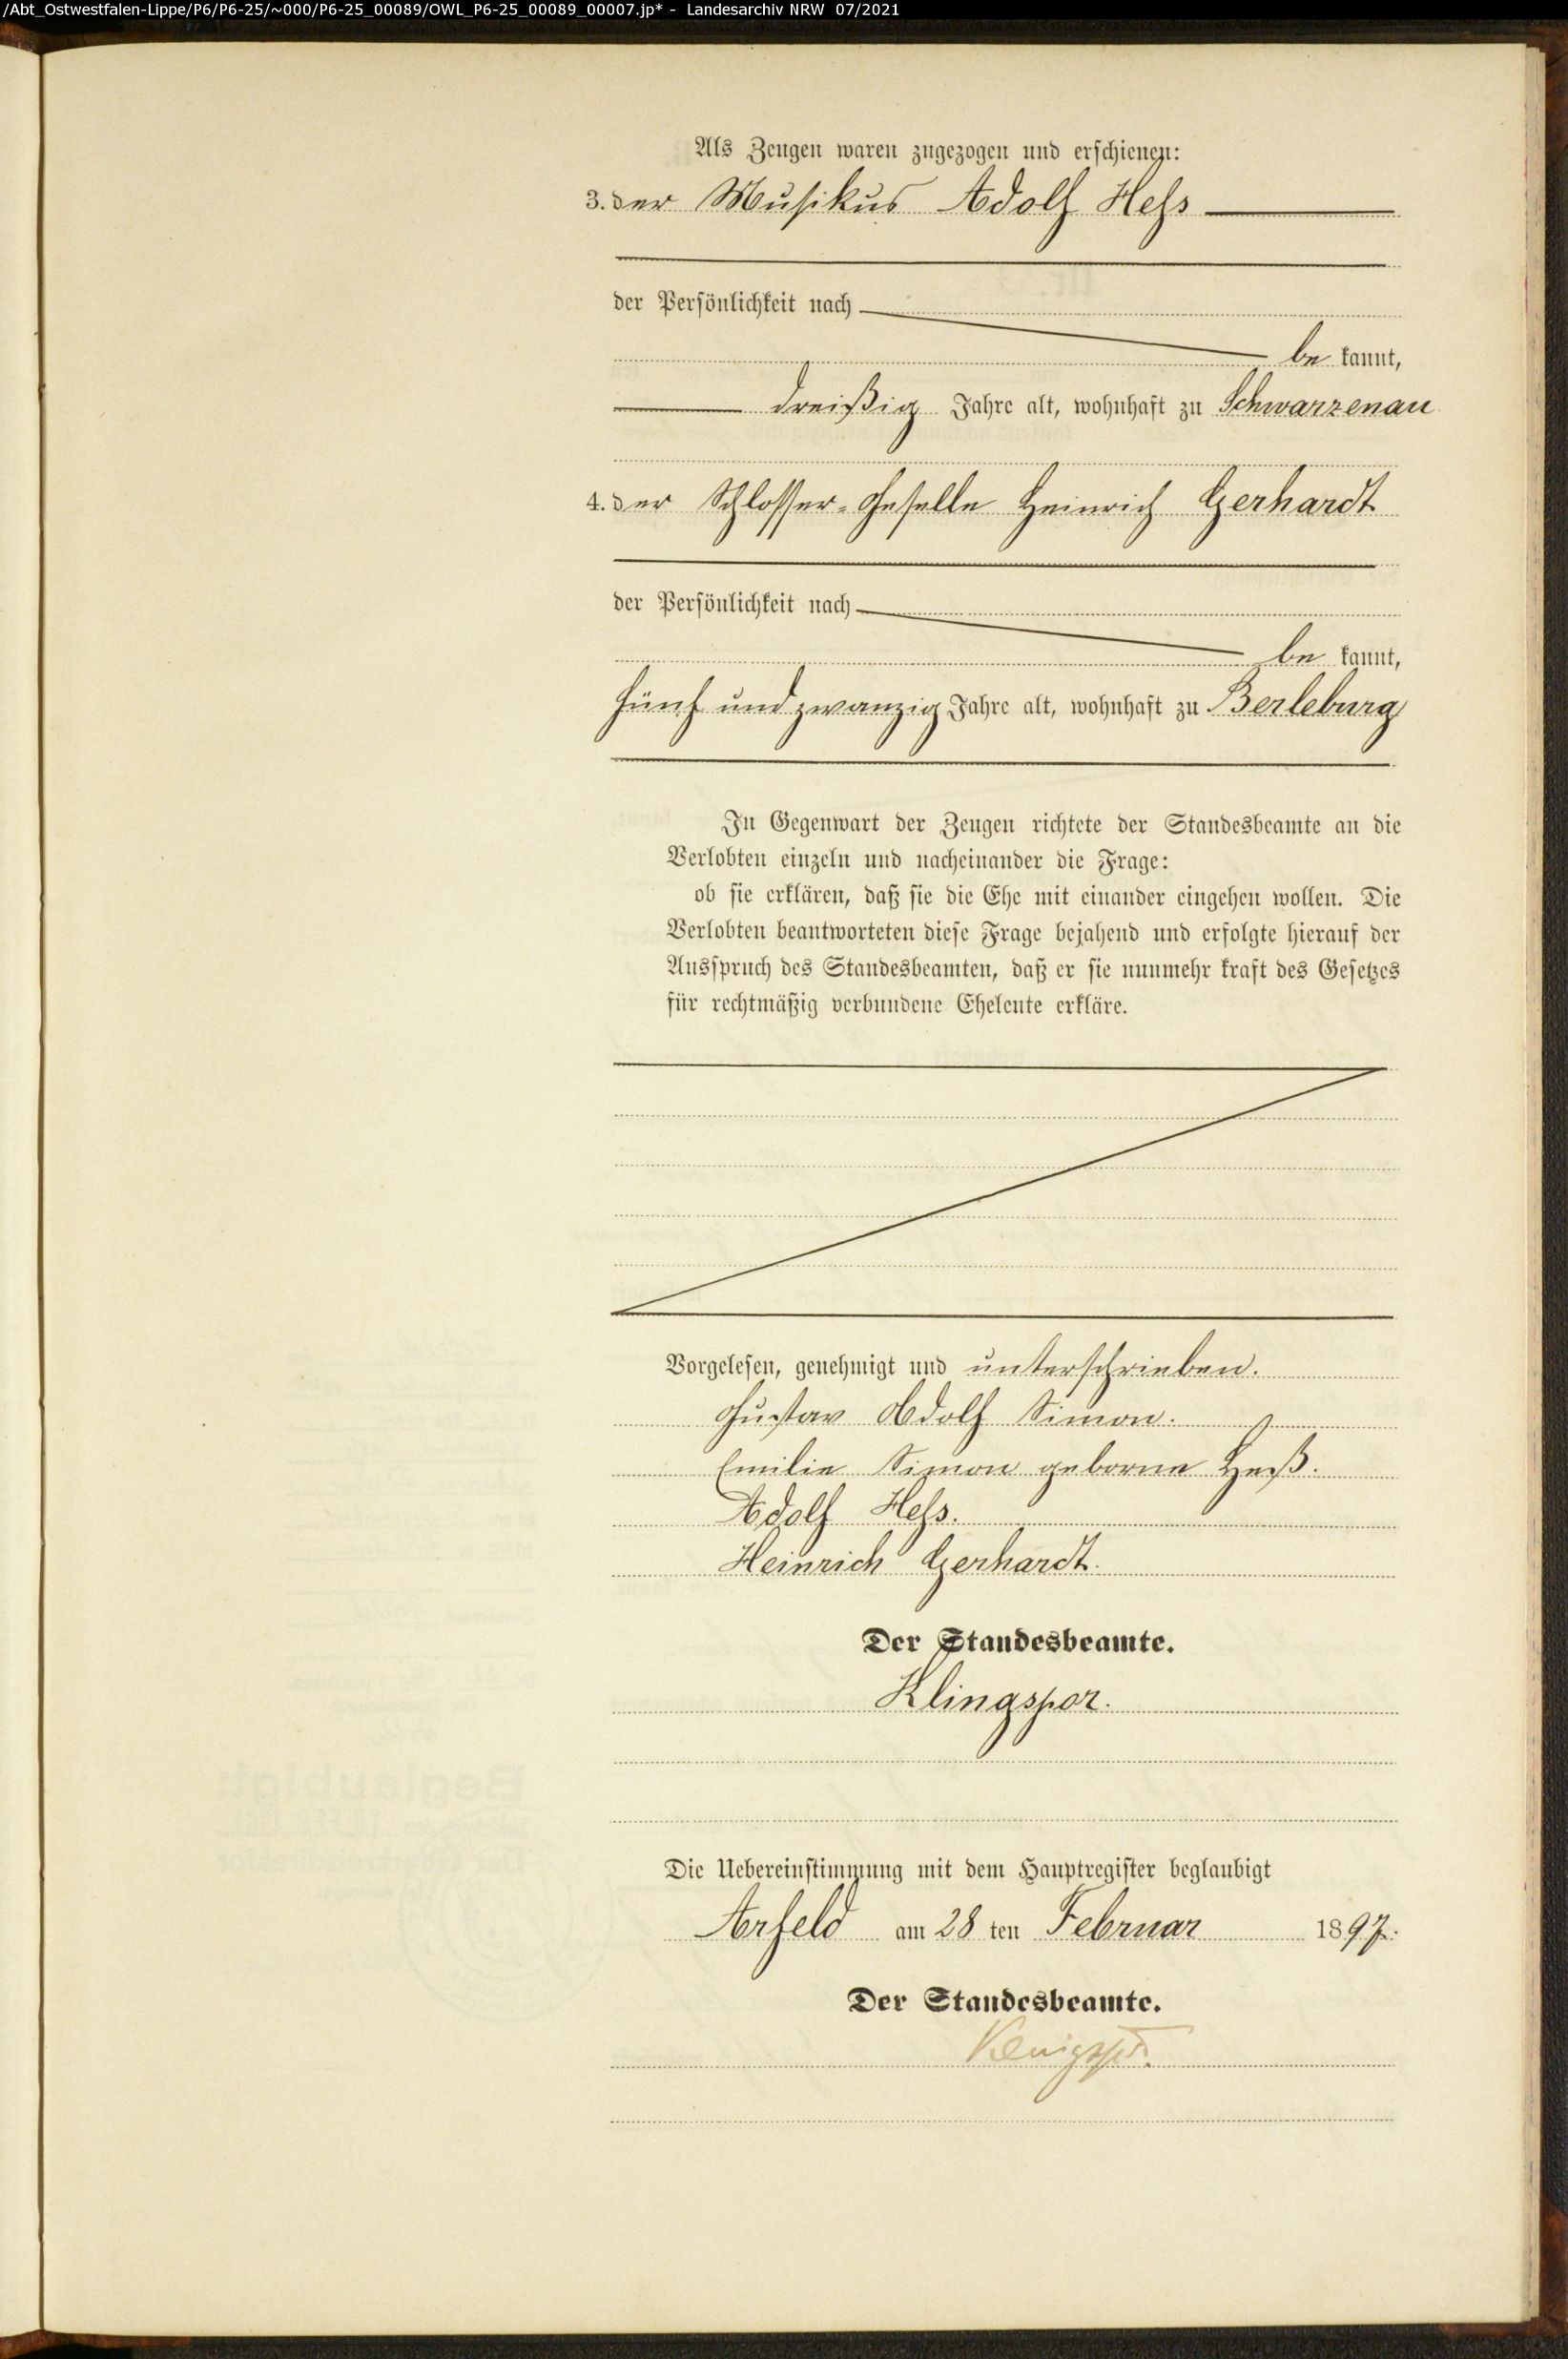 /Abt_Ostwestfalen-Lippe/P6/P6-25/~000/P6-25_00089/OWL_P6-25_00089_00007.jp* - Landesarchiv NRW 07/2021
Als Zeugen waren zugezogen und erschienen:
3. der Musikus Adolf Heſs
der Persönlichkeit nach
be kannt,
dreißig Jahre alt, wohnhaft zu Schwarzenau
4. der Schlosser-Geselle Heinrich Gerhardt
der Persönlichkeit nach
be kannt,
fünf und zwanzig Jahre alt, wohnhaft zu Berleburg
In Gegenwart der Zeugen richtete der Standesbeamte an die
Verlobten einzeln und nacheinander die Frage:
ob sie erklären, daß sie die Ehe mit einander eingehen wollen. Die
Verlobten beantworteten diese Frage bejahend und erfolgte hierauf der
Ausspruch des Standesbeamten, daß er sie nunmehr kraft des Gesetzes
für rechtmäßig verbundene Eheleute erkläre.
Vorgelesen, genehmigt und unterschrieben.
Gustav Adolf Simon.
Emilie Simon geborne Heß.
Adolf Heſs.
Heinrich Gerhardt.
Der Standesbeamte.
Klingspor.
Die Uebereinstimmung mit dem Hauptregister beglaubigt
Arfeld am 28 ten Februar 1897.
Der Standesbeamte.